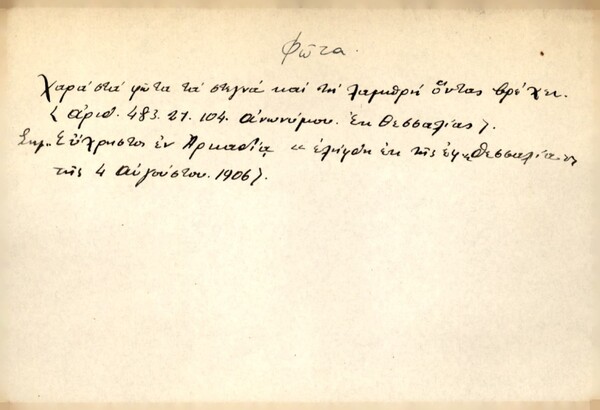 Φῶτα.
Χαρά στά φῶτα τά στεγνά καί τή λαμπρή ὅντας βρέχει.
(ἀριθ. 483. 27. 104. ἀνωνύμου. Ἐκ Θεσσαλίας).
Σημ. Εὔχρηστος ἐν Ἀρκαδίᾳ κ ἐλήφθη ἐκ τῆς ἐφ "Θεσσαλία"
τῆς 4 Αὐγούστου. 1906).